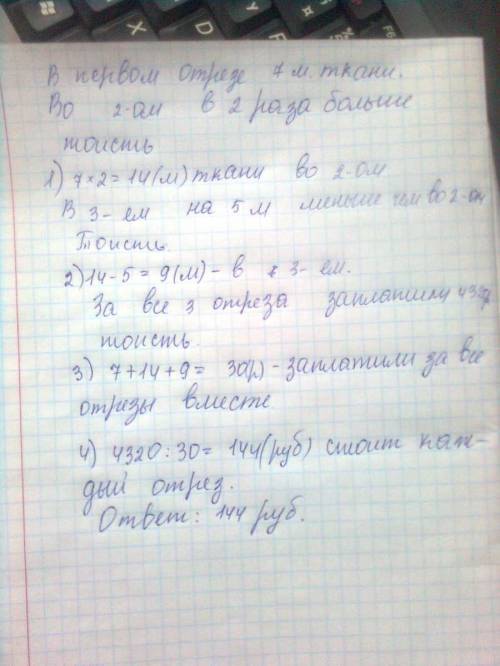 В первом отрезе 7 м. ткани.
Во 2-ом в 2 раза больше
тоисть
1) 7×2=14(м) ткани во 2-ом
В 3-ем на 5 м меньше чем во 2-ом
Тоисть.
2) 14-5=9(м)- в 3-ем.
За все 3 отреза заплатили
тоисть.
3) 7+14+9= 30(р)-заплатили за все
отрезы вместе
4) 4320:30= 144(руб) стоит каж-
дый отрез.
Ответ: 144 руб.